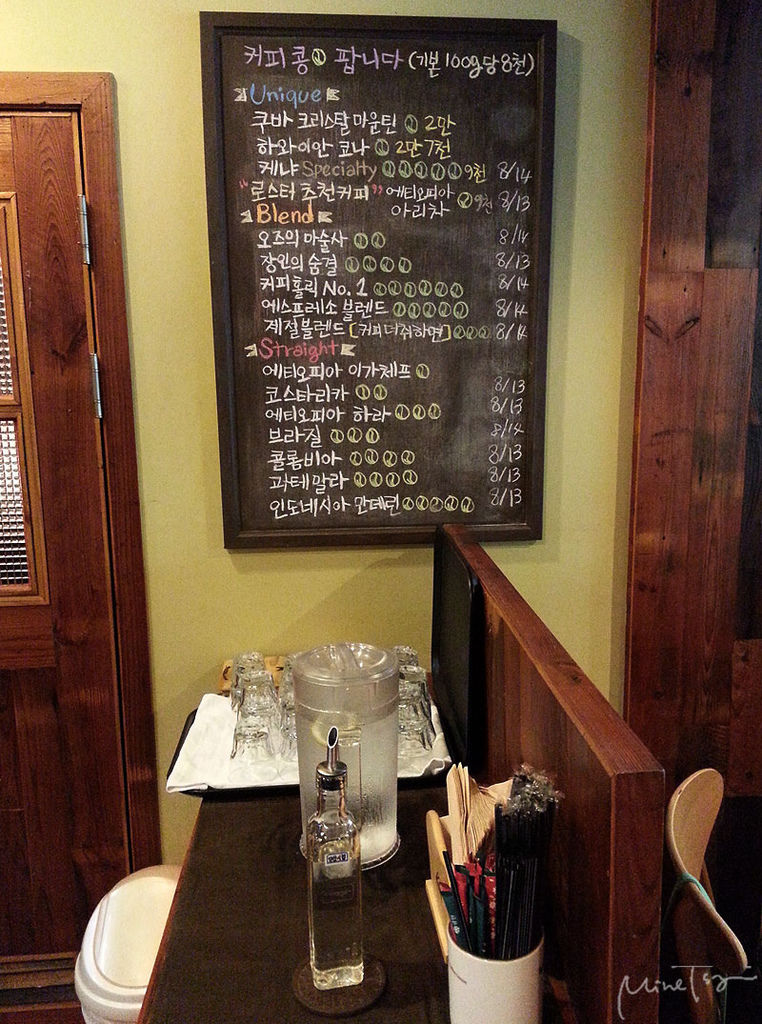 커피콩 팝니다 (기본 100g당 8천)
Unique
쿠바 크리스탈 마운틴 2만
하와이안 코나 2만 7천
케냐 Specialty 9천 8/14
"로스터 추천커피" 에티오피아 아리차 9천 8/13
Blend
오즈의 마술사 8/14
장인의 숨결 8/13
커피홀릭 No. 1 8/14
에스프레소 블렌드 8/14
계절블렌드 [커피더쥐하면] 8/14
Straight
에티오피아 이가체프
코스타리카 8/13
에티오피아 하라 8/13
브라질 8/14
콜롬비아 8/13
과테말라 8/13
인도네시아 만데린 8/13